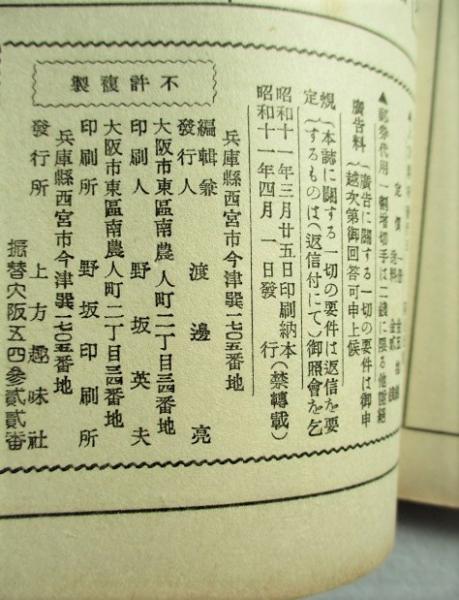 定價
▲郵券代用
廣告料（廣告に關する一切の要件は御申
越次第御回答可申上候
規（本誌に關する一切の要件は返信を要
定（するものは（返信付にて）御照會を乞
昭和十一年三月廿五日印刷納本
昭和十一年四月一日發行（禁轉載）
不許複製
兵庫縣西宮市今津巽一七〇五番地
編輯兼
發行人 渡邊亮
大阪市東區南農人町二丁目三四番地
印刷人 野坂英夫
大阪市東區南農人町二丁目三四番地
印刷所 野坂印刷所
兵庫縣西宮市今津巽一七〇五番地
發行所 上方趣味社
振替大阪五四參貳貳番